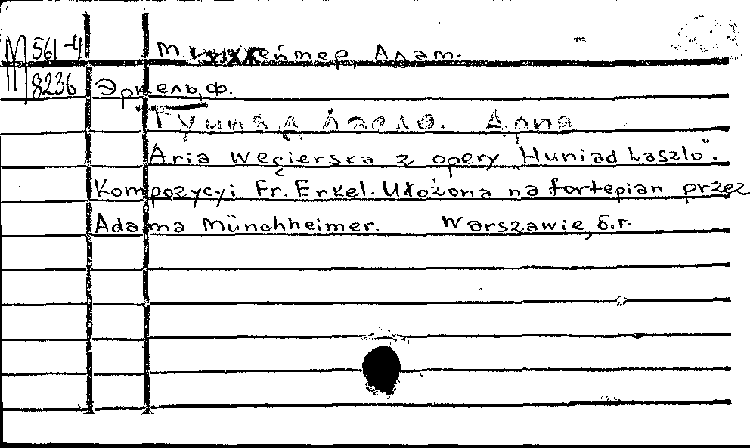 М 561-4 Адам.
8236 Эркель, Ф.
Гунияд Ласло. Ария
Aria węgierska z opery "Huniad Laszlo".
Kompozycyi Fr. Erkel. Ułożona na fortepian przez
Adama Münchheimer. Warszawie, б.г.